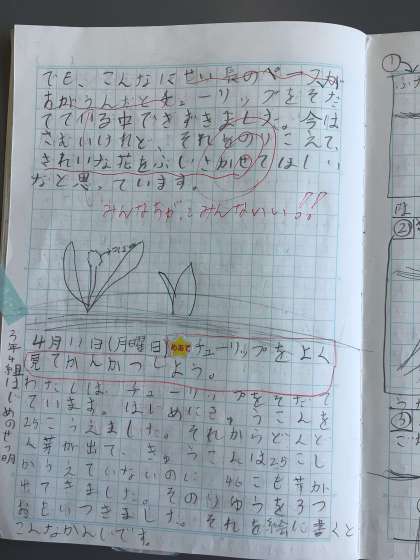 でも、こんなにせい長のペースが
ちがうんだとチューリップをそだ
てている中できずきました。今は
さむいけれど、それをのりこえて、
きれいな花をぶじさかせてほしい
なと思っています。
みんなちがってみんないい!!
4月11日(月曜日)めあてチューリップをよく
見てかんさつしよう。
わたしは、チューリップをそだて
ています。はじめにきゅうこんを
25こうえました。それからどんど
ん芽が出て、きゅうこんは25こし
かうえていないのに、46こも芽が
出てきました。そのりゆうを3つ
おもいつきました。それを絵に書くと
こんなかんじです。
2年4組はじめのせつ明
①
②
③